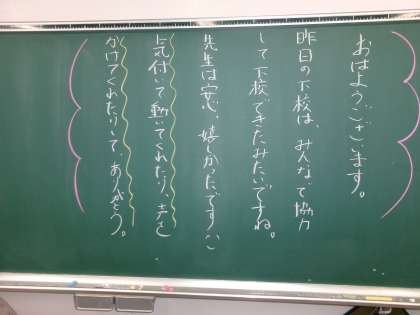 おはようございます。
昨日の下校は、みんなで協力
して下校できたみたいですね。
先生は安心、嬉しかったです(^^
気付いて動いてくれたり、声を
かけてくれたりして、ありがとう。